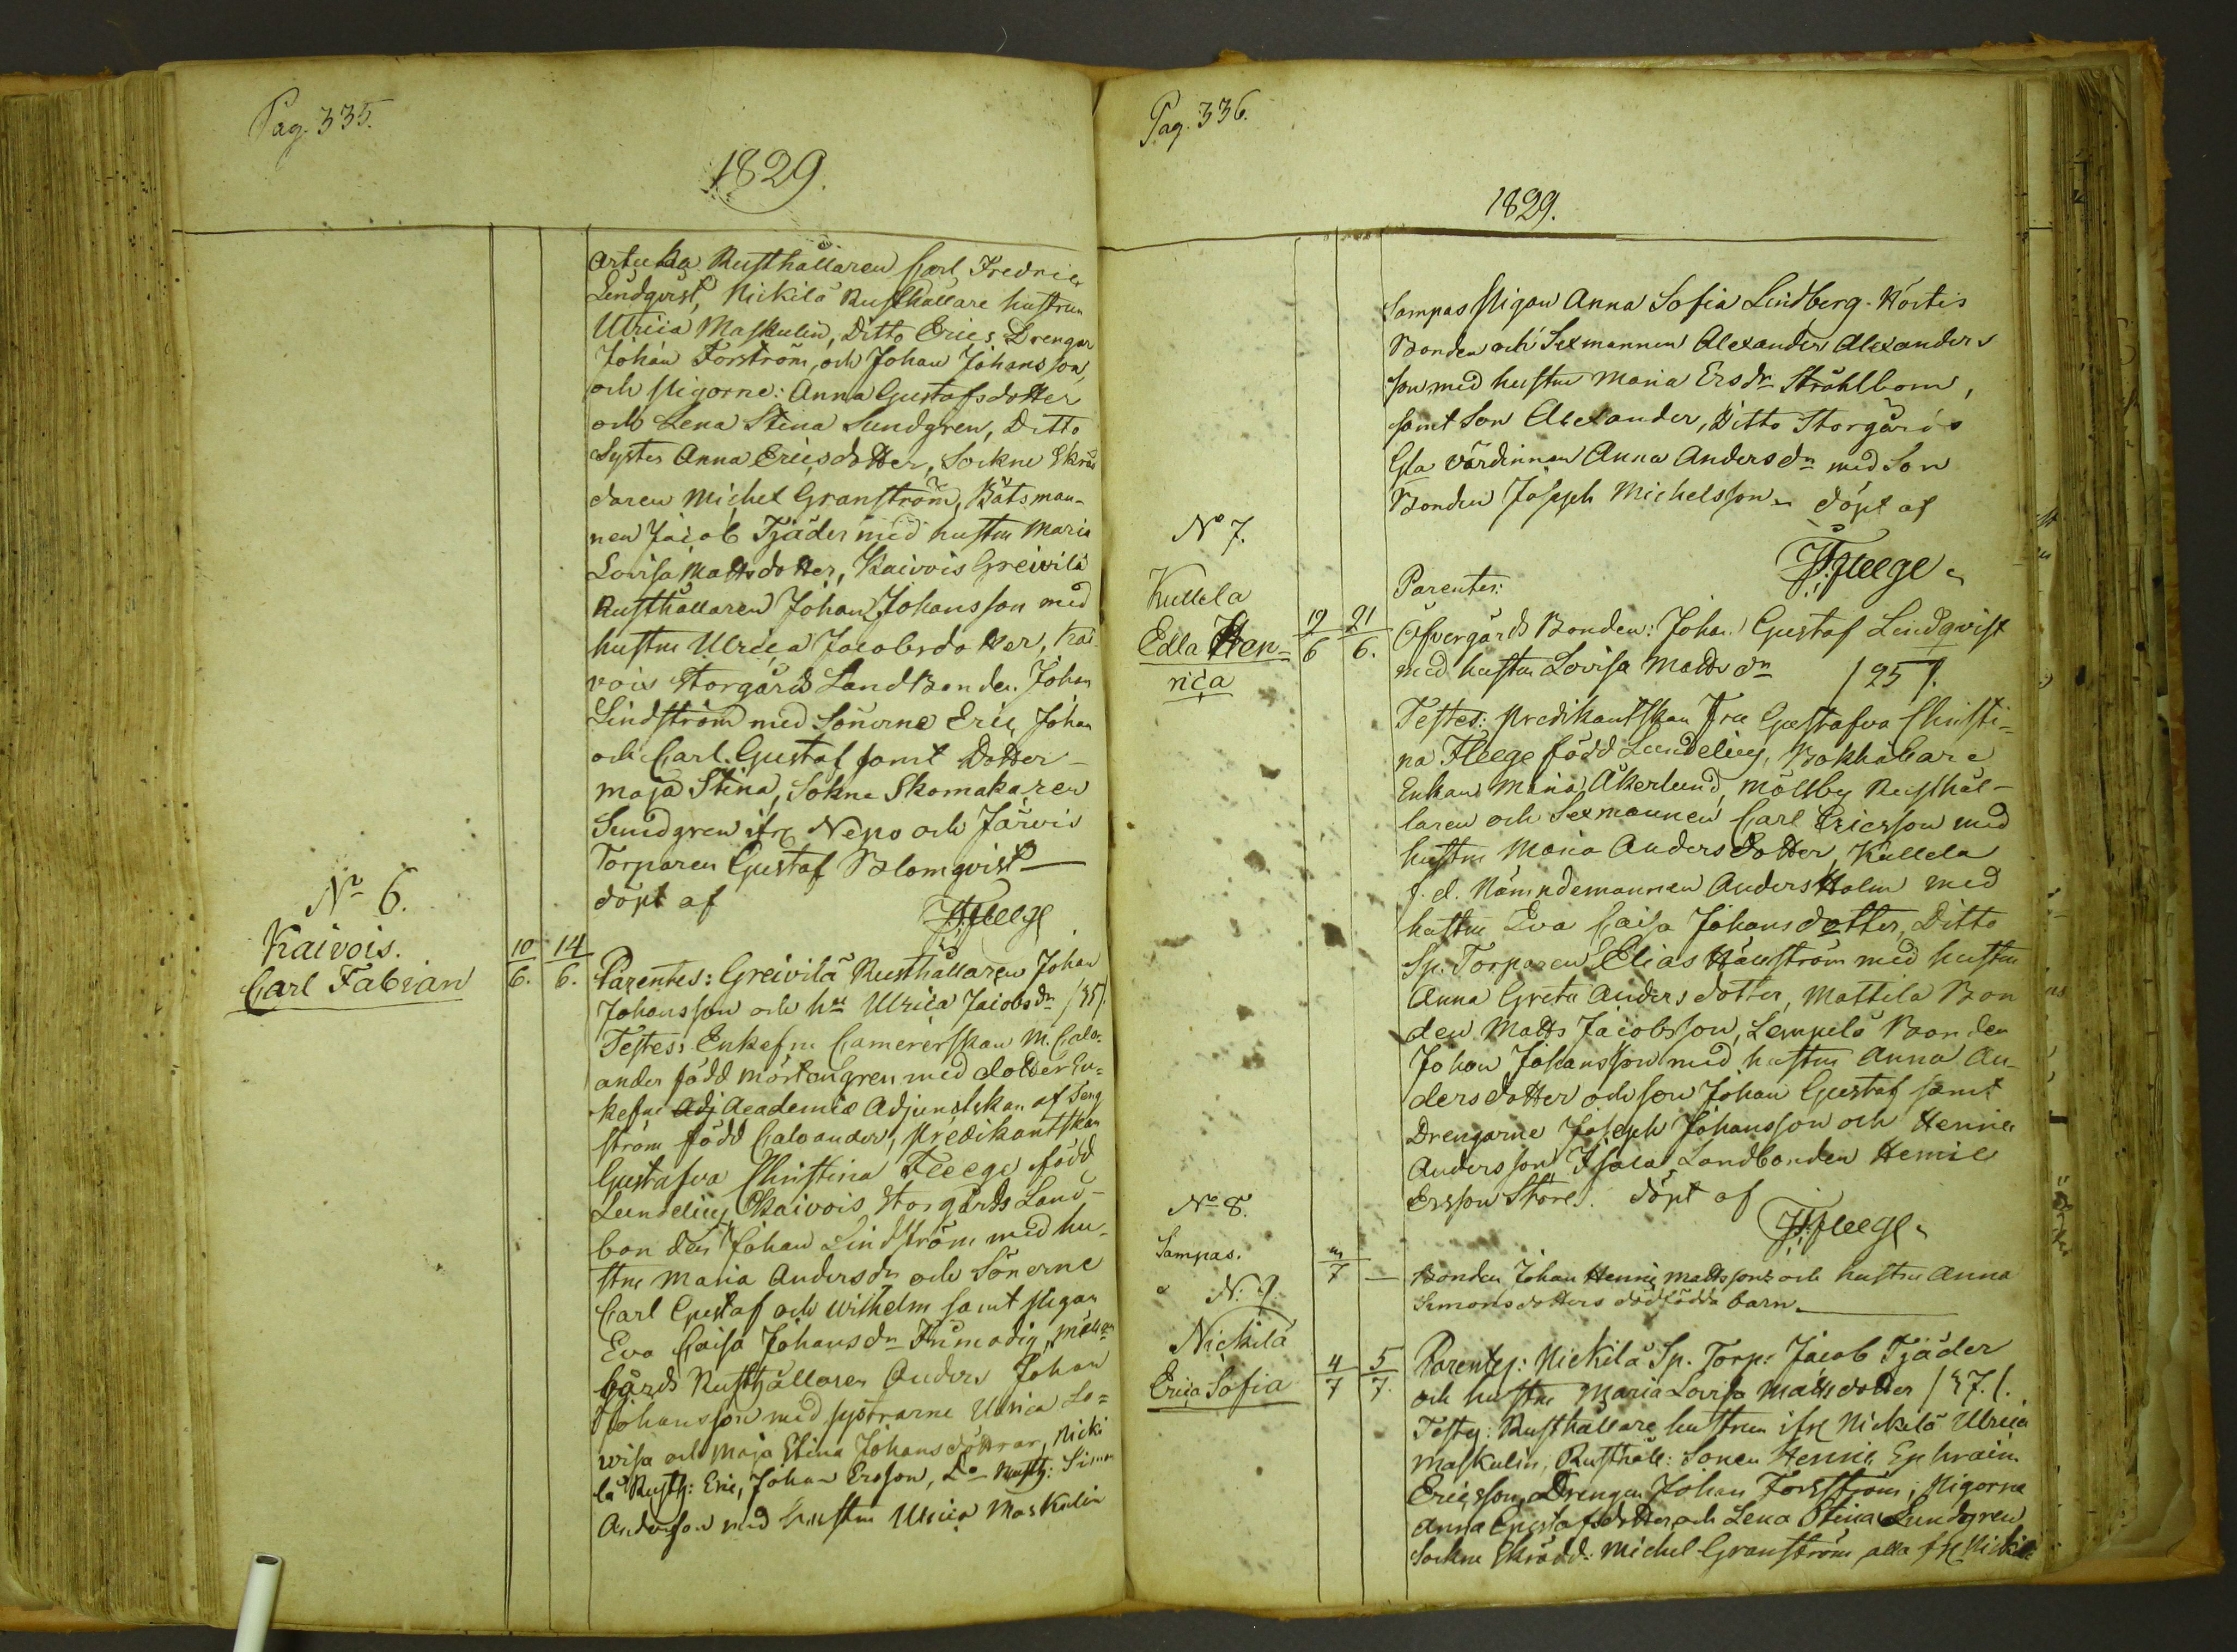 Pag. 335.
1829.
Artukka Rusthållaren Carl Fredric
Lindqvist, Nickilä Rusthållare hustrun
Ulrica Maskulin, Ditto Erics Drengar
Johan Forström, och Johan Johansson,
och Pigorne: Anna Gustafsdotter
och Lena Stina Sundgren, Ditto
Syster Anna Ericsdotter, Sockne Skräd
daren Michel Granström, Båtsman-
nen Jacob Tjäder med hustru Maria
Lovisa Mattsdotter, Kaivois Greivilä
Rusthållaren Johan Johansson med
hustru Ulrica Jacobsdotter, Kai
vois Storgårds LandBonden Johan
Lindström med Sönerne Eric, Johan
och Carl Gustaf samt Dotter
Maja Stina, Sokne Skomakaren
Sundgren ifr Nepo och Järvis
Torparen Gustaf Blomqvist
döpt af
Fleege
No 6.
Kaivois.
Carl Fabian
10/6. 14/6.
Parentes: Greivilä Rusthållaren Johan
Johansson och hu Ulrica Jacobsdr /35/.
Testes: Enkefru Camererskan M. Calo-
ander född Mörtengren med dotter En-
kefru Adj Academiæ Adjunctskan af Teng
ström född Caloander, Predikantskan
Gustafva Christina Fleege född
Lundelius, Kaivois Storgårds Land-
bonden Johan Lindström med hu-
stru Maria Andersdr och Sönerne
Carl Gustaf och Wilhelm samt Pigan
Eva Caisa Johansdr Frimodig,
gårds Rusthållaren Anders Johan
Johansson med systrarne Ulrica Lo-
visa och Maja Stina Johansdöttrar, Nicki
lä Rusth: Eric, Johan Ersson, Do Rusth: Simon
Andersson med hustru Ulrica Maskulin
Pag. 336.
1829.
Sampas Pigan Anna Sofia Lindberg. Hörtis
Bonden och Sexmannen Alexander Alexanders
son med hustru Maria Ersdr Stråhlbom,
samt Son Alexander, Ditto Storgårds
Gla Värdinnan Anna Andersdr med Son
Bonden Joseph Michelsson döpt af
Fleege
No 7.
Kullela
Edla Hen-
rica
19/6 21/6.
Parentes:
Öfvergårds Bonden: Johan Gustaf Lindqvist
med hustru Lovisa Mattsdr /25/.
Testes: Predikantskan Fru Gustafva Christi-
na Fleege född Lundelius, Bokhålare
Enkan Maria Åkerlund, Möllby Rusthål-
laren och Sexmannen Carl Ericsson med
hustru Maria Andersdotter, Kullela
f.d. Nämndemannen Anders Holm med
hustru Eva Caisa Johansdotter, Ditto
Sp. Torparen Elias Hänström med hustru
Anna Greta Andersdotter, Mattila Bon
den Matts Jacobsson, Lempelä Bonden
Johan Johansson med hustru Anna An-
dersdotter och son Johan Gustaf samt
Drengarne Joseph Johansson och Henric
Andersson Isala Landbonden Henric
Ersson Store. döpt af
Fleege
No 8.
Sampas.
7
Bonden Johan Henric Mattssons och hustru Anna
Simonsdotters dödfödda barn.
N. 9.
Nickilä
Erica Sofia
4/7 5/7.
Parentes: Nickilä Sp. Torp: Jacob Tjäder
och hustru Maria Lovisa Mattsdotter /37./.
Testes: Rusthållare hustrun ifr Nickilä Ulrica
Maskulin, Rusthåll: Sonen Henric Ephraim
Ericsson, Drengen Johan Forsström, Pigorna
Anna Gustafsdotter och Lena Stina Sundgren
Sockne Skrädd: Michel Granström alla fr Nickilä